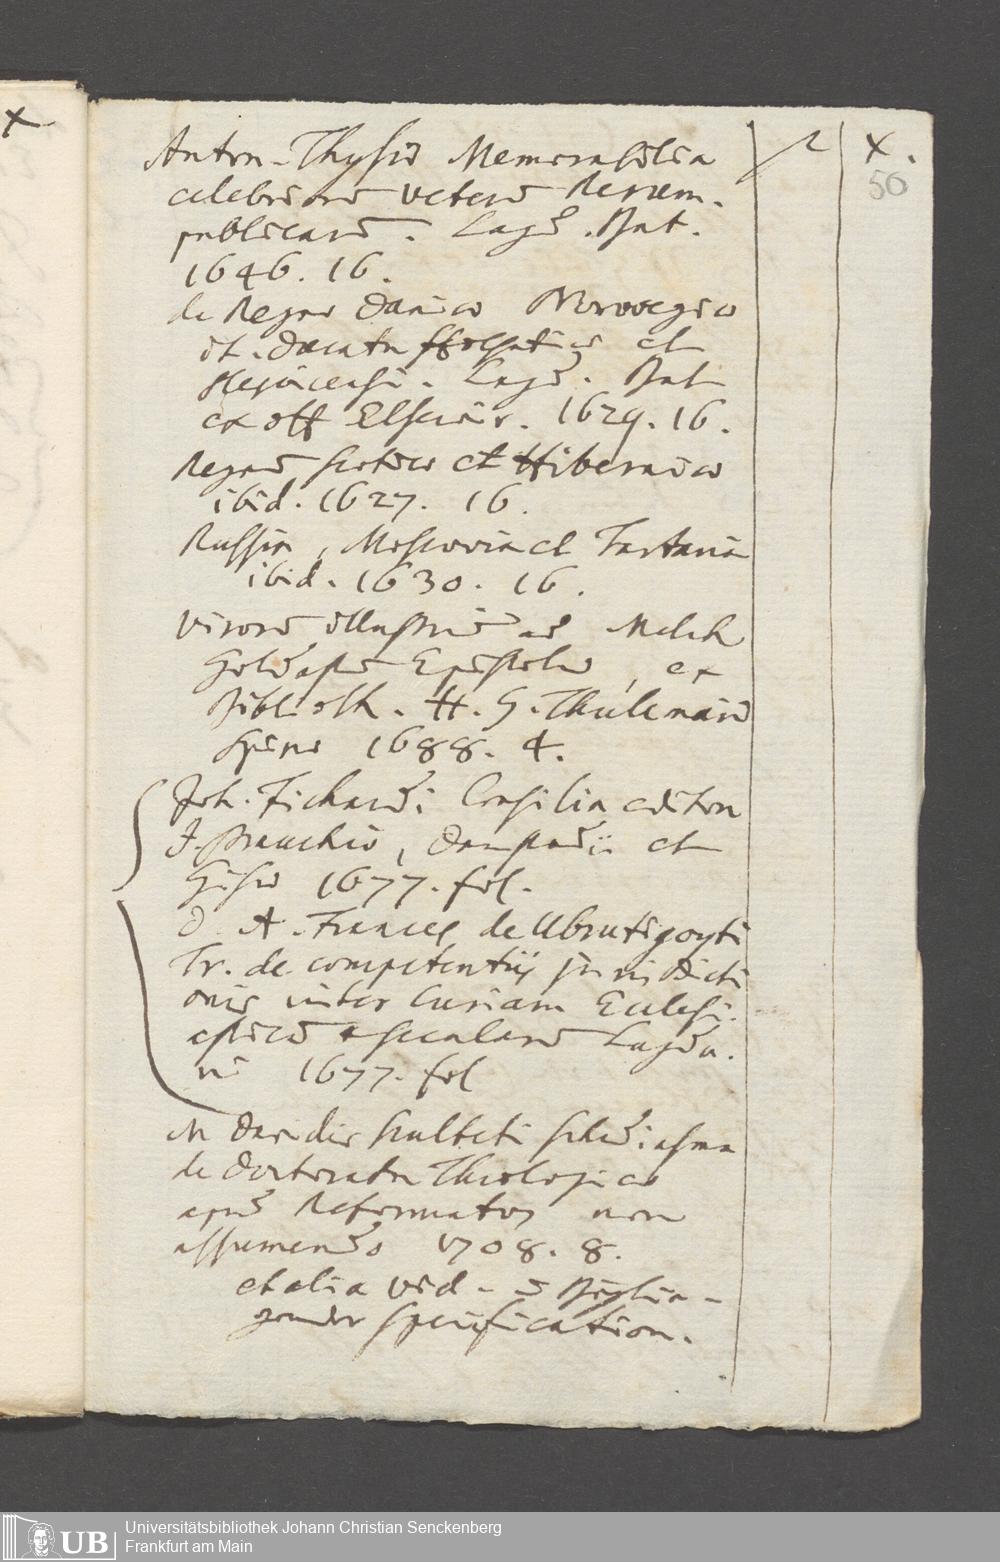 x
Anton. Thysii Memorabilia
celebriorũ veterũ Rerum.
publicarũ. Lugd. Bat.
1646. 16.
de Regno Danico Norwegico
et. ducatu Holsatico et
Slesvicensi. Lugd. Bat
ex off Elsevir. 1629. 16.
Regno Scotico et Hibernico
ibid. 1627. 16.
Russia, Moscovia et Tartaria
ibid. 1630. 16.
virorũ illustriũ ad Melch
Goldastũ Epistolæ, ex
Biblioth. H. G. Thülemarii
Spiræ 1688. 4.
Joh. Fichardi Consilia editore
1677. fol.
D. A. Frances de Ubrutigoyti
Tr. de competentiis jurisdicti
onis inter Curiam Ecclesi.
asticũ & secularẽ Lugdu.
ni 1677. fol
M Davidis Sculteti schediasma
de doctoratu Theologico
apud Reformatos non
assumendo 1708. 8.
et alia vid. Beylie-
gender Specification.
x.
50
UB
Universitätsbibliothek Johann Christian Senckenberg
Frankfurt am Main